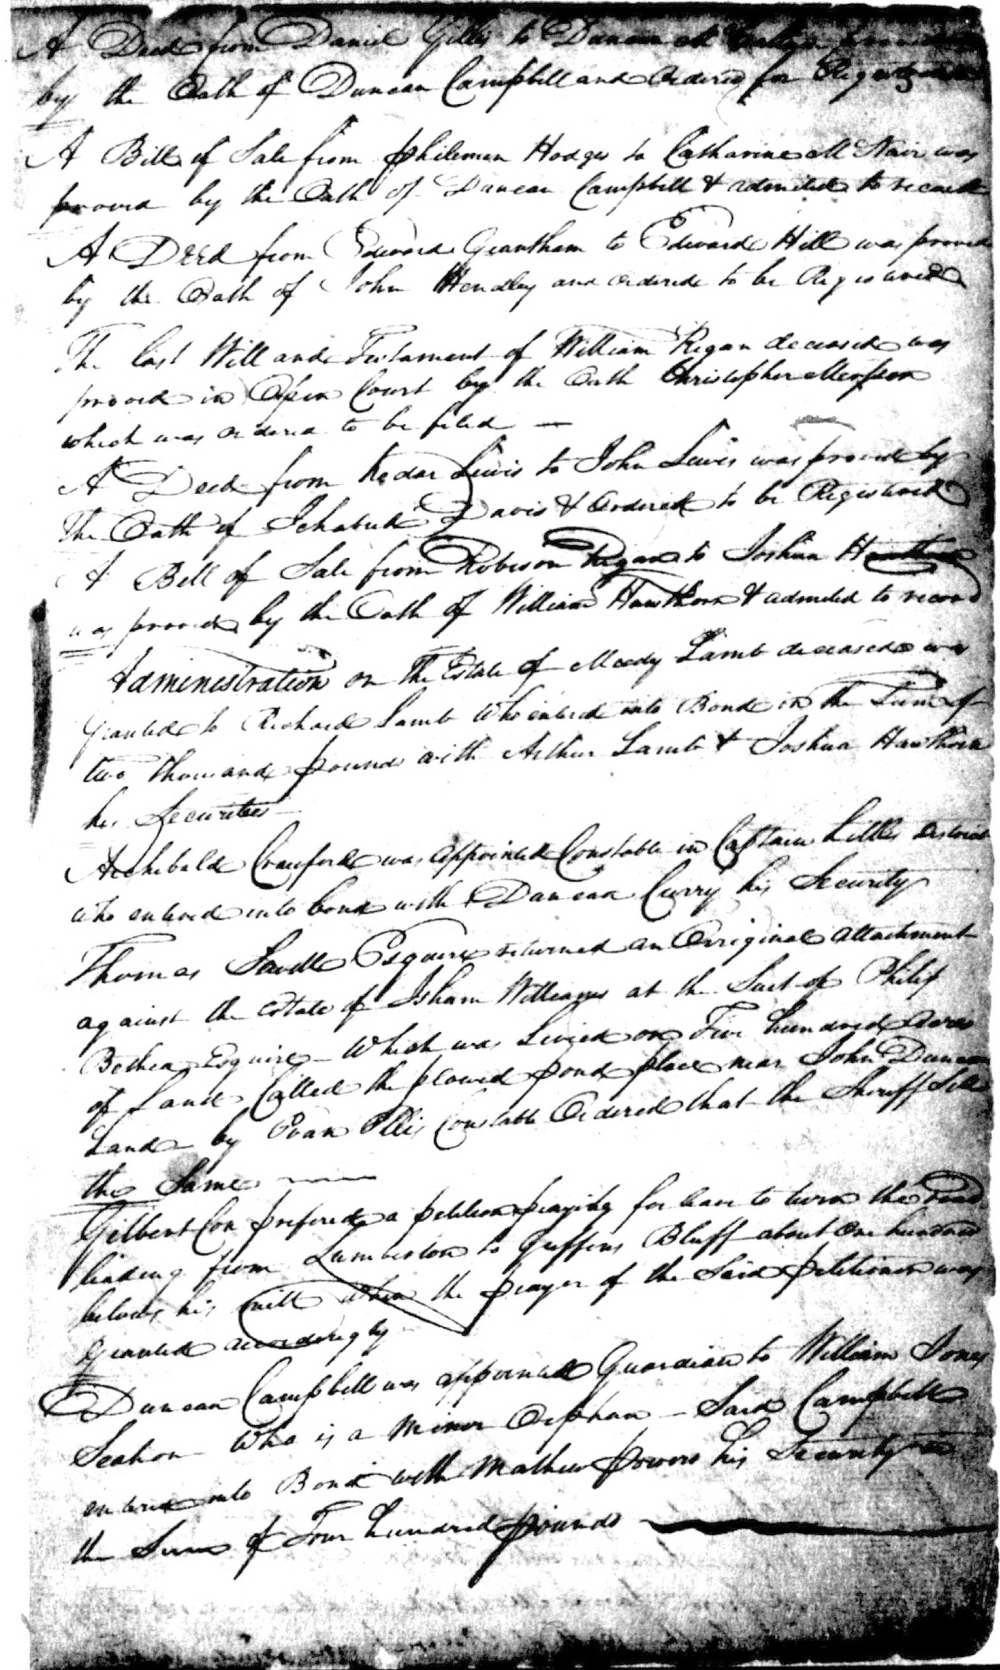 A Deed from Daniel Gillis to Duncan
by the Oath of Duncan Campbell and Ordered for
A Bill of Sale from Philemon Hodges to Catharine McNair was
proved by the Oath of Duncan Campbell & admitted to record
A Deed from Edward Grantham to Edward Hill was proved
by the Oath of John Hendley and ordered to be Registered
The last Will and Testament of William Regan deceased was
proved in Open Court by the Oath Christopher
which was ordered to be filed —
A Deed from Kedar Lewis to John Lewis was proved by
the Oath of Ichabud Davis & Ordered to be Registered
A Bill of Sale from Robison Regan to Joshua Hawthorn
was proved by the Oath of William Hawthorn & admited to record
Administration on the Estate of Meedy Lamb deceased was
Granted to Richard Lamb Who entered into Bond in the Sum of
two thousand pounds with Arthur Lamb & Joshua Hawthorn
his Securities —
Archibald Crawford was appointed Constable in Captain Littles district
who entered into bond with Duncan Curry his Security
Thomas Esquire returned an Original attachment
against the estate of Isham Williams at the Suit of Philip
Bethea Esquire — Which was Levied on Five hundred acres
of Land Called the plowed pond place near John Duncan
Land — by Evan Ellis Constable Ordered that the Sheriff Sell
the Same —
Gilbert Cox prefered a petition praying for leave to turn the road
leading from Lumberton to Griffins Bluff about One hundred
below his mill when the prayer of the Said petitioner was
Granted accordingly
Duncan Campbell was appointed Guardian to William Jones
Who is a Minor Orphan — Said Campbell
entered into Bond with Mathew Powers his Security in
the Sum of Four hundred pounds —